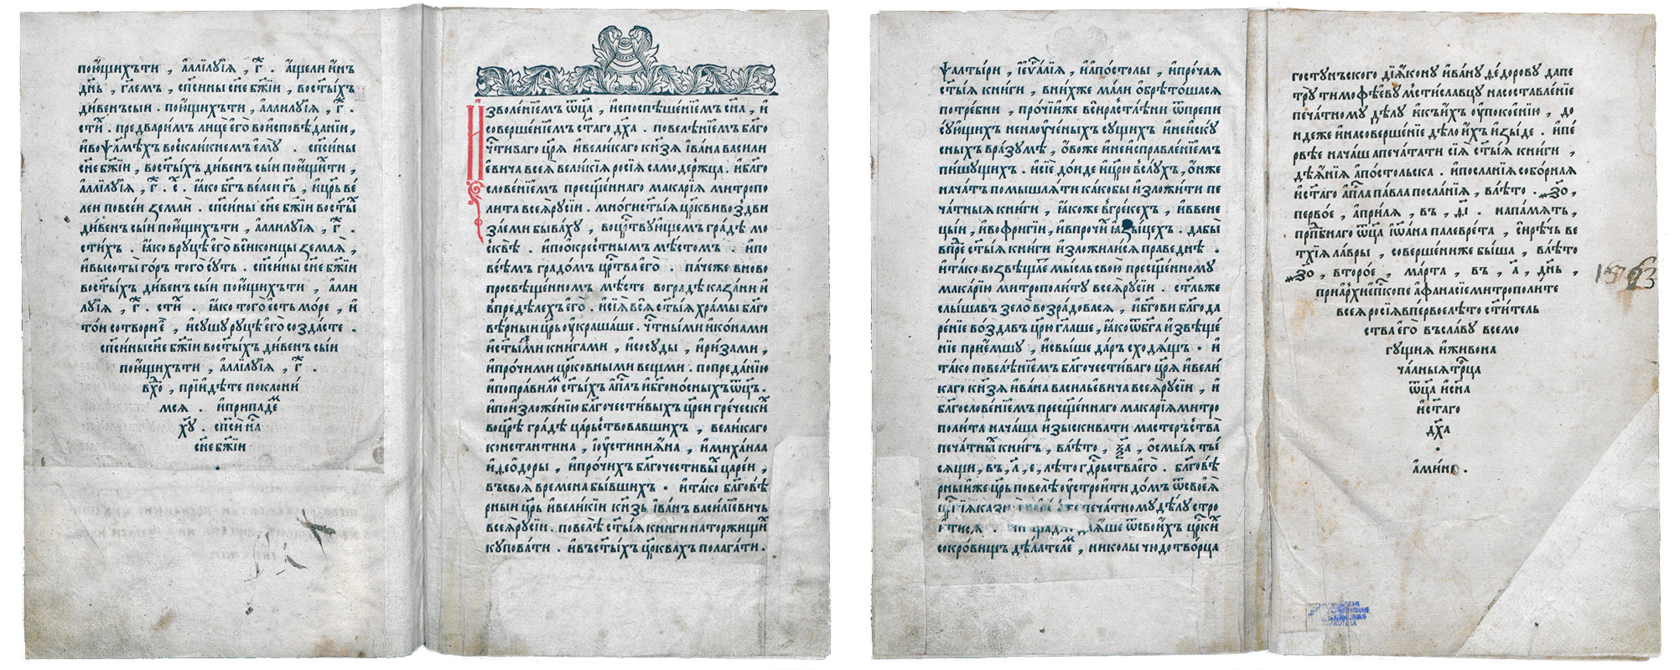 пою́щихъти , а҆ллилꙋ́їѧ , г҃ . а҆́щели и҆́нъ
дн҃ь , гл҃емъ , сп҃си́ны сн҃е бж҃їи , востѣ́хъ
ди́венъсыи . пою́щихъти , а҆ллилꙋ́їѧ , г҃ .
сти́х . предвари́мъ лице́ є҆го̀ воисповѣ́данїи ,
и҆воѱалмѣ́хъ воскли́кнемъ є҆мꙋ̀ . сп҃си́ны
сн҃е бж҃їи , востѣ́хъ ди́венъ сы́и пою́щихти ,
а҆ллилꙋ́їѧ , г҃ . с . ꙗ҆́ко бг҃ъ ве́леи гь҃ , и҆цр҃ь ве
леи повсеи́ землѝ . сп҃си́ны сн҃е бж҃їи востѣ́х
ди́венъ сы́и пою́щихъти , а҆ллилꙋ́їѧ , г҃ .
сти́хъ . ꙗ҆́ко врꙋцѣ̀ є҆го̀ всѝ концы̀ землѧ̀ ,
и҆высоты̀ го́ръ того̀ сꙋ́ть . сп҃си́ны сн҃е бж҃їи
востѣ́хъ ди́венъ сы́и пою́щихъти , а҆лли
лꙋ́їѧ , г҃ . сти́х . ꙗ҆́ко того̀ є҆́сть мо́ре , и҆
то́и сотворѝ є҆̀ , и҆сꙋ́шꙋ рꙋцѣ̀ є҆го̀ созда́сте .
сп҃си́ны сн҃е бж҃їи востѣ́хъ ди́венъ сы́и
пою́щихъти , а҆ллилꙋ́їѧ , г҃ .
вхо́ , прїиди́те поклони́
мсѧ . и҆припаде́м
хꙋ҃ . сп҃си́ на
сн҃е бж҃їи
И҆зволе́нїемъ ѿц҃а , и҆споспѣше́нїемъ сн҃а , и҆
соверше́нїемъ ст҃аго дх҃а . повелѣ́нїемъ бл҃го
чти́ваго цр҃ѧ̀ и҆вели́каго кн҃зѧ и҆ва́на васи́ли
євича всеѧ̀ вели́кїѧ росі́ѧ самоде́ржца . и҆бл҃го
слове́нїемъ прес҃щеннаго мака́рїѧ митропо
ли́та всеѧ̀ рꙋсі́и . мно́ги ст҃ы́ѧ цр҃кви воздви
за́еми быва́хꙋ , воцр҃твꙋющемъ гра́дѣ мо
сквѣ̀ . и҆поѡ҆кре́стнымъ мѣ́стомъ . и҆по
всѣ́мъ градо́мъ цр҃тва є҆го̀ . па́чеже вново
просвѣще́нномъ мѣ́сте воградѣ каза́ни и҆
впредѣлехъ є҆го̀ . и҆сїѧ̀ всѧ̀ ст҃ы́ѧ хра́мы бл҃го
вѣ́рныи цр҃ь ᲂу҆краша́ше . чтⷭ҇ны́ми и҆ко́нами
и҆ст҃ы́ми кни́гами , и҆сосꙋ́ды , и҆ри́зами ,
и҆про́чими цр҃ко́вными ве́щми . попреда́нїю
и҆поправи́лꙋ ст҃ы́хъ а҆пл҃ъ и҆бг҃оно́сныхъ ѿц҃ъ .
и҆поизложе́нїю бл҃гочести́выхъ цр҃еи гре́чески
воцр҃ѣ гра́дѣ ца́рьствовавшихъ , вели́каго
константи́на , і҆ꙋстинїѧ́на , и҆михаи́ла
и҆ѳео́доры , и҆про́чихъ бл҃гочести́выⷯ царе́и ,
въсвоѧ̀ времена̀ бы́вшихъ . и҆та́ко бл҃говѣ́
рныи цр҃ь и҆вели́кїи кн҃зь и҆ва́нъ васи́лїевичь
всеѧ̀ рꙋсі́и . повелѣ̀ ст҃ы́ѧ кни́ги наторжи́щи
кꙋпова́ти . и҆въст҃ы́хъ цр҃квахъ полага́ти .
ѱалты́ри , і҆еѵⷢ҇лїѧ , и҆а҆по́столы , и҆про́чаѧ
ст҃ы́ѧ кни́ги , вни́хже ма́ли ѡ҆брѣто́шасѧ
потре́бни , про́чїиже всѝ растлѣ́ни ѿпрепи
сꙋ́ющихъ ненаᲂу҆че́ныхъ сꙋ́щихъ и҆неи҆скꙋ
сныхъ вра́зꙋмѣ , ѻ҆́воже и҆неи҆справле́нїемъ
пи́шꙋщихъ . и҆сїѐ до́йде и҆цр҃ю̀ вслꙋ́хъ , ѻ҆́нже
нача́тъ помышлѧ́ти ка́кобы и҆зложи́ти пе
ча́тныѧ кни́ги , ꙗ҆́коже вгре́кехъ , и҆ввене
цы́и , и҆вофриги́и , и҆впро́чихъ ꙗ҆зы́цехъ . дабы̀
впре́дь ст҃ы́ѧ кни́ги и҆зложи́лисѧ праве́днѣ .
и҆та́ко возвѣща́ет мы́сль свою̀ прес҃щенномꙋ
мака́рїю митрополи́тꙋ всеѧ̀ рꙋсі́и . ст҃льже
слы́шавъ ѕѣло̀ возра́довасѧ , и҆бг҃ови бл҃года
ре́нїе возда́въ цр҃ю̀ гл҃аше , ꙗ҆́ко ѿбг҃а и҆звѣще́
нїе прїе́мшꙋ , и҆свы́ше да́ръ сходѧ́щь . и҆
та́ко повелѣ́нїемъ бл҃гочести́ваго цр҃ѧ̀ и҆вели
каго кн҃зѧ и҆ва́на васи́льевича всеѧ̀ рꙋсі́и , и҆
бл҃гослове́нїемъ прес҃щеннаго мака́рїѧ митро
поли́та нача́ша и҆зы́скивати ма́стерьства
печа́тныⷯ кни́гъ , влѣ́то , ѯ҃а , ѻ҆смы́ѧ ты́
сѧщи , въ , л҃ , є҆ , лѣ́то гдⷭ҇рьства є҆го̀ . бл҃говѣ́
рныиже цр҃ь повелѣ̀ ᲂу҆стро́ити до́мъ ѿсвоеѧ̀
цр҃кїѧ казны̀ и҆дѣ́же печа́тномꙋ дѣ́лꙋ стро
сокро́вищъ дѣ́лателем , нико́лы чюдотво́рца
гостꙋ́ньского дїѧ́конꙋ и҆ва́нꙋ ѳе́доровꙋ дапе
трꙋ̀ тимоѳѣ́евꙋ мсти́славцꙋ насоставле́нїе
печа́тномꙋ дѣ́лꙋ и҆къи҆́хъ ᲂу҆покое́нїю , до
ндеже и҆насоверше́нїе дѣ́ло и҆́хъ и҆зы́де . и҆пе́
рвѣе нача́ша печа́тати сїѧ̀ ст҃ы́ѧ кни́ги ,
дѣѧ́нїѧ а҆по́стольска . и҆посла́нїѧ собо́рнаѧ
и҆ст҃аго а҆пⷭ҇ла па́вла посла́нїѧ , влѣ́то , ҂зѻ҃а ,
пе́рвое , а҆при́лѧ , въ , ѳ҃і . напа́мѧть ,
прпⷣбнаго ѿц҃а і҆ѡа́на палевре́та , си́рѣчь ве
тхі́ѧ ла́вры , соверше́ниже бы́ша , влѣ́то
҂зѻ҃ , второ́е , ма́рта , въ , а҃ , дн҃ь ,
приа҆рхїеп҃кпе а҆фана́сїе митрополи́те
всеѧ̀ росі́ѧ впе́рвое лѣ́то ст҃и́тель
ства є҆го̀ въ сла́вꙋ всемо
гꙋ́щїѧ и҆живона
ча́лныѧ трⷪ҇ца
ѿц҃а и҆сн҃а
и҆ст҃аго
дх҃а
а҆ми́нь .
1563